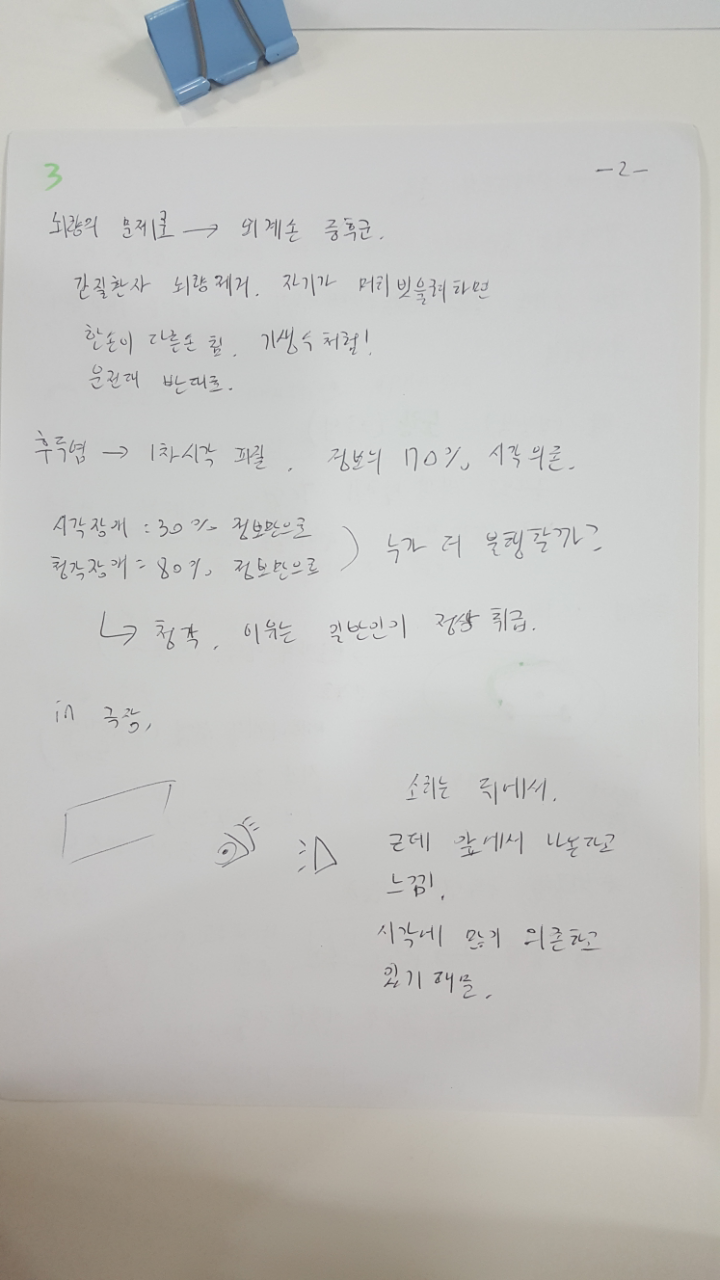 3
-2-
뇌량의 문제로 → 외계손 증후군.
간질환자 뇌량제거. 자기가 머리빗을려하면
한손이 다른손 힘. 기생수처럼!
운전대 반대로.
후두엽 → 1차시각 피질. 정보의 70%, 시각의존.
시각장애 : 30% 정보만으로
청각장애 = 80%, 정보만으로
누가 더 불행할까?
↳ 청각, 이유는 일반인이 정상 취급.
in 극장,
소리는 뒤에서.
근데 앞에서 나온다고
느낌.
시각에 많이 의존하고
있기 때문.